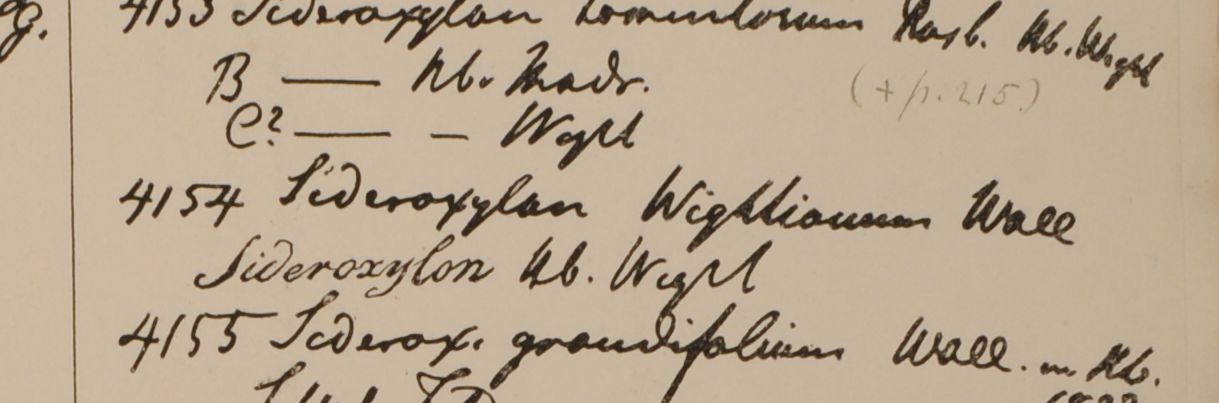 4153 Sideroxylon tomentosum Roxb. Hb. Wight
B —— Hb. Madr. (+/p. 215.)
C? —— — Wight
4154 Sideroxylon Wightianum Wall
Sideroxylon Hb. Wight
4155 Siderox. grandifolium Wall. in Hb.